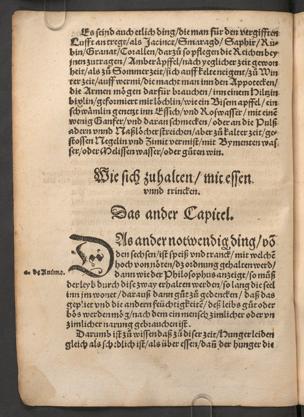 Es seind auch etlich ding/die man für den vergifften
Lufft antregt/als Jacinct/Smaragd/Saphir/Ru-
bin/Granat/Corallen/dar zů so pflegen die Reichen bey
jnen zutragen/Amberäpffel/nach yeglicher zeyt gewon
heit/als zů Sommerzeit/sich auff kelte neigent/zů Win
ter zeit/auff wermj/die macht man inn den Appotecken/
die Armen mögen darfür brauchen/inn einem Hültzin
bixlin/geformiert mit löchlin/wie ein Bisem apffel/ein
schwämlin genetzt inn Essich/vnd Roßwasser/mit eine
wenig Ganfer/vnd daran schmecken/oder an die Pulß
adern vnnd Naßlöcher streichen/aber zů kalter zeit/ge-
stossen Negelin vnd Zimit vermist/mit Bymenten was
ser/oder Melissen wasser/oder gůten win.
Wie sich zuhalten/mit essen
vnnd trincken.
Das ander Capitel.
DAs ander notwendig ding/võ
den sechsen/ist speiß vnd tranck/mit welchẽ
hoch von nöten/dz ordnung gehalten werd/
dann wie der Philosophus anzeigt/so můß
der leyb durch dise zway erhalten werden/so lang die seel
inn im wonet/darauß dann gůt zů gedencken/daß das
geplüt vnd die andern feüchtigkeitẽ/deß leibs gůt oder
bös werden mög/nach dem ein mensch zimlicher oder vn
zimlicher narung gebrauchen ist.
Darumb ist zů wissen daß zů diser zeit/Hunger leiden
gleich als schedlich ist/als über essen/dañ der hunger die
2. de Anima.